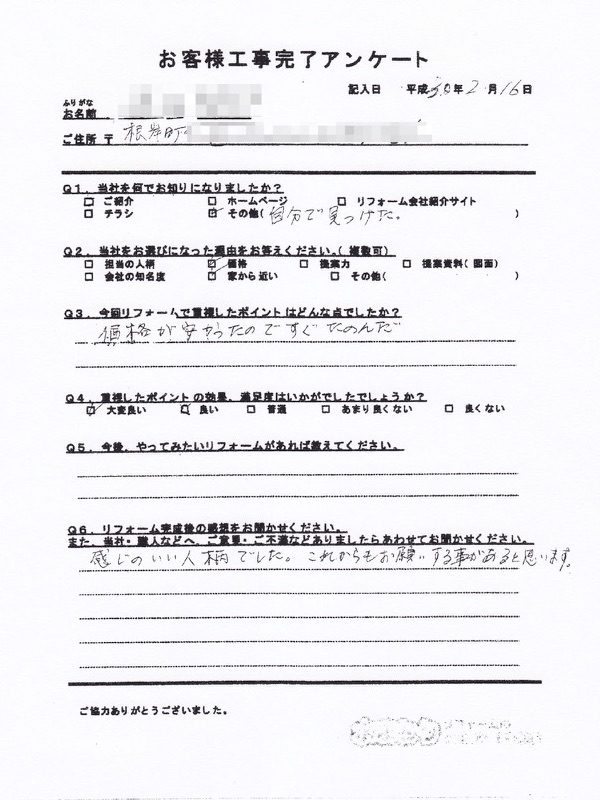 お客様工事完了アンケート
記入日 平成30年2月16日
ふりがな
お名前
ご住所 〒 根岸町
Q1. 当社を何でお知りになりましたか?
□ ご紹介 □ ホームページ □ リフォーム会社紹介サイト
□ チラシ ☑ その他( 自分で見つけた。 )
Q2. 当社をお選びになった理由をお答えください。( 複数可)
□ 担当の人柄 ☑ 価格 □ 提案力 □ 提案資料( 図面)
□ 会社の知名度 ☑ 家から近い □ その他( )
Q3. 今回リフォームで重視したポイントはどんな点でしたか?
価格が安かったのですぐたのんだ
Q4. 重視したポイントの効果、満足度はいかがでしたでしょうか?
☑ 大変良い ☑ 良い □ 普通 □ あまり良くない □ 良くない
Q5. 今後、やってみたいリフォームがあれば教えてください。
Q6. リフォーム完成後の感想をお聞かせください。
また、当社・職人などへ、ご意見・ご不満などありましたらあわせてお聞かせください。
感じのいい人柄でした。これからもお願いする事があると思います。
ご協力ありがとうございました。